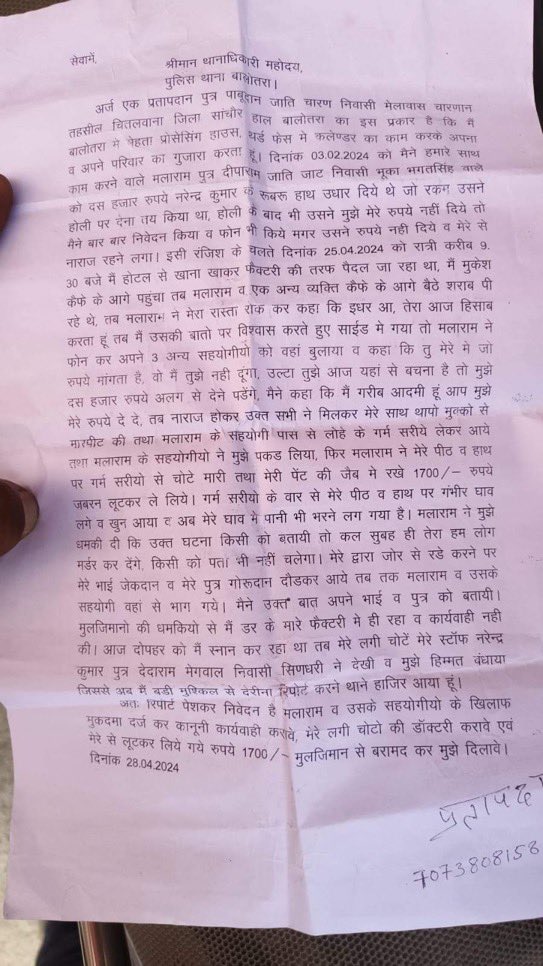 सेवामें,
श्रीमान थानाधिकारी महोदय,
पुलिस थाना बालोतरा।
अर्ज एक प्रतापदान पुत्र पाबूदान जाति चारण निवासी मेलावास चारणान
तहसील चितलवाना जिला सांचौर हाल बालोतरा का इस प्रकार है कि मैं
बालोतरा मे मेहता प्रोसेसिंग हाउस, थर्ड फेस मे कलेण्डर का काम करके अपना
व अपने परिवार का गुजारा करता हूं। दिनांक 03.02.2024 को मैने हमारे साथ
काम करने वाले मलाराम पुत्र दीपाराम जाति जाट निवासी भूका भगतसिंह वाले
को दस हजार रुपये नरेन्द्र कुमार के रूबरू हाथ उधार दिये थे जो रकम उसने
होली पर देना तय किया था, होली के बाद भी उसने मुझे मेरे रुपये नहीं दिये तो
मैने बार बार निवेदन किया व फोन भी किये मगर उसने रुपये नही दिये व मेरे से
नाराज रहने लगा। इसी रंजिश के चलते दिनांक 25.04.2024 को रात्री करीब 9.
30 बजे मैं होटल से खाना खाकर फैक्टरी की तरफ पैदल जा रहा था, मैं मुकेश
कैफे के आगे पहुंचा तब मलाराम व एक अन्य व्यक्ति कैफे के आगे बैठे शराब पी
रहे थे, तब मलाराम ने मेरा रास्ता रोक कर कहा कि इधर आ, तेरा आज हिसाब
करता हूं तब मैं उसकी बातो पर विश्वास करते हुए साईड मे गया तो मलाराम ने
फोन कर अपने 3 अन्य सहयोगीयो को वहां बुलाया व कहा कि तु मेरे मे जो
रुपये मांगता है, वो मैं तुझे नही दूंगा, उल्टा तुझे आज यहां से बचना है तो मुझे
दस हजार रुपये अलग से देने पडेंगे, मैने कहा कि मैं गरीब आदमी हूं आप मुझे
मेरे रुपये दे दे, तब नाराज होकर उक्त सभी ने मिलकर मेरे साथ थापो मुक्को से
मारपीट की तथा मलाराम के सहयोगी पास से लोहे के गर्म सरीये लेकर आये
तथा मलाराम के सहयोगीयो ने मुझे पकड लिया, फिर मलाराम ने मेरे पीठ व हाथ
पर गर्म सरीयो से चोटे मारी तथा मेरी पेंट की जैब मे रखे 1700/- रुपये
जबरन लूटकर ले लिये। गर्म सरीयो के वार से मेरे पीठ व हाथ पर गंभीर घाव
लगे व खुन आया व अब मेरे घाव मे पानी भी भरने लग गया है। मलाराम ने मुझे
धमकी दी कि उक्त घटना किसी को बतायी तो कल सुबह ही तेरा हम लोग
मर्डर कर देंगे, किसी को पता भी नहीं चलेगा। मेरे द्वारा जोर से रडे करने पर
मेरे भाई जेकदान व मेरे पुत्र गोरूदान दौडकर आये तब तक मलाराम व उसके
सहयोगी वहां से भाग गये। मैने उक्त बात अपने भाई व पुत्र को बतायी।
मुलजिमानो की धमकियो से मैं डर के मारे फैक्टरी मे ही रहा व कार्यवाही नही
की। आज दोपहर को मैं स्नान कर रहा था तब मेरे लगी चोटें मेरे स्टॉफ नरेन्द्र
कुमार पुत्र देदाराम मेगवाल निवासी सिणधरी ने देखी व मुझे हिम्मत बंधाया
जिससे अब मैं बडी मुश्किल से देरीना रिपोर्ट करने थाने हाजिर आया हूं।
अतः रिपोर्ट पेशकर निवेदन है मलाराम व उसके सहयोगीयो के खिलाफ
मुकदमा दर्ज कर कानूनी कार्यवाही करावे, मेरे लगी चोटो की डॉक्टरी करावे एवं
मेरे से लूटकर लिये गये रुपये 1700/- मुलजिमान से बरामद कर मुझे दिलावे।
दिनांक 28.04.2024
प्रतापद
7073808158